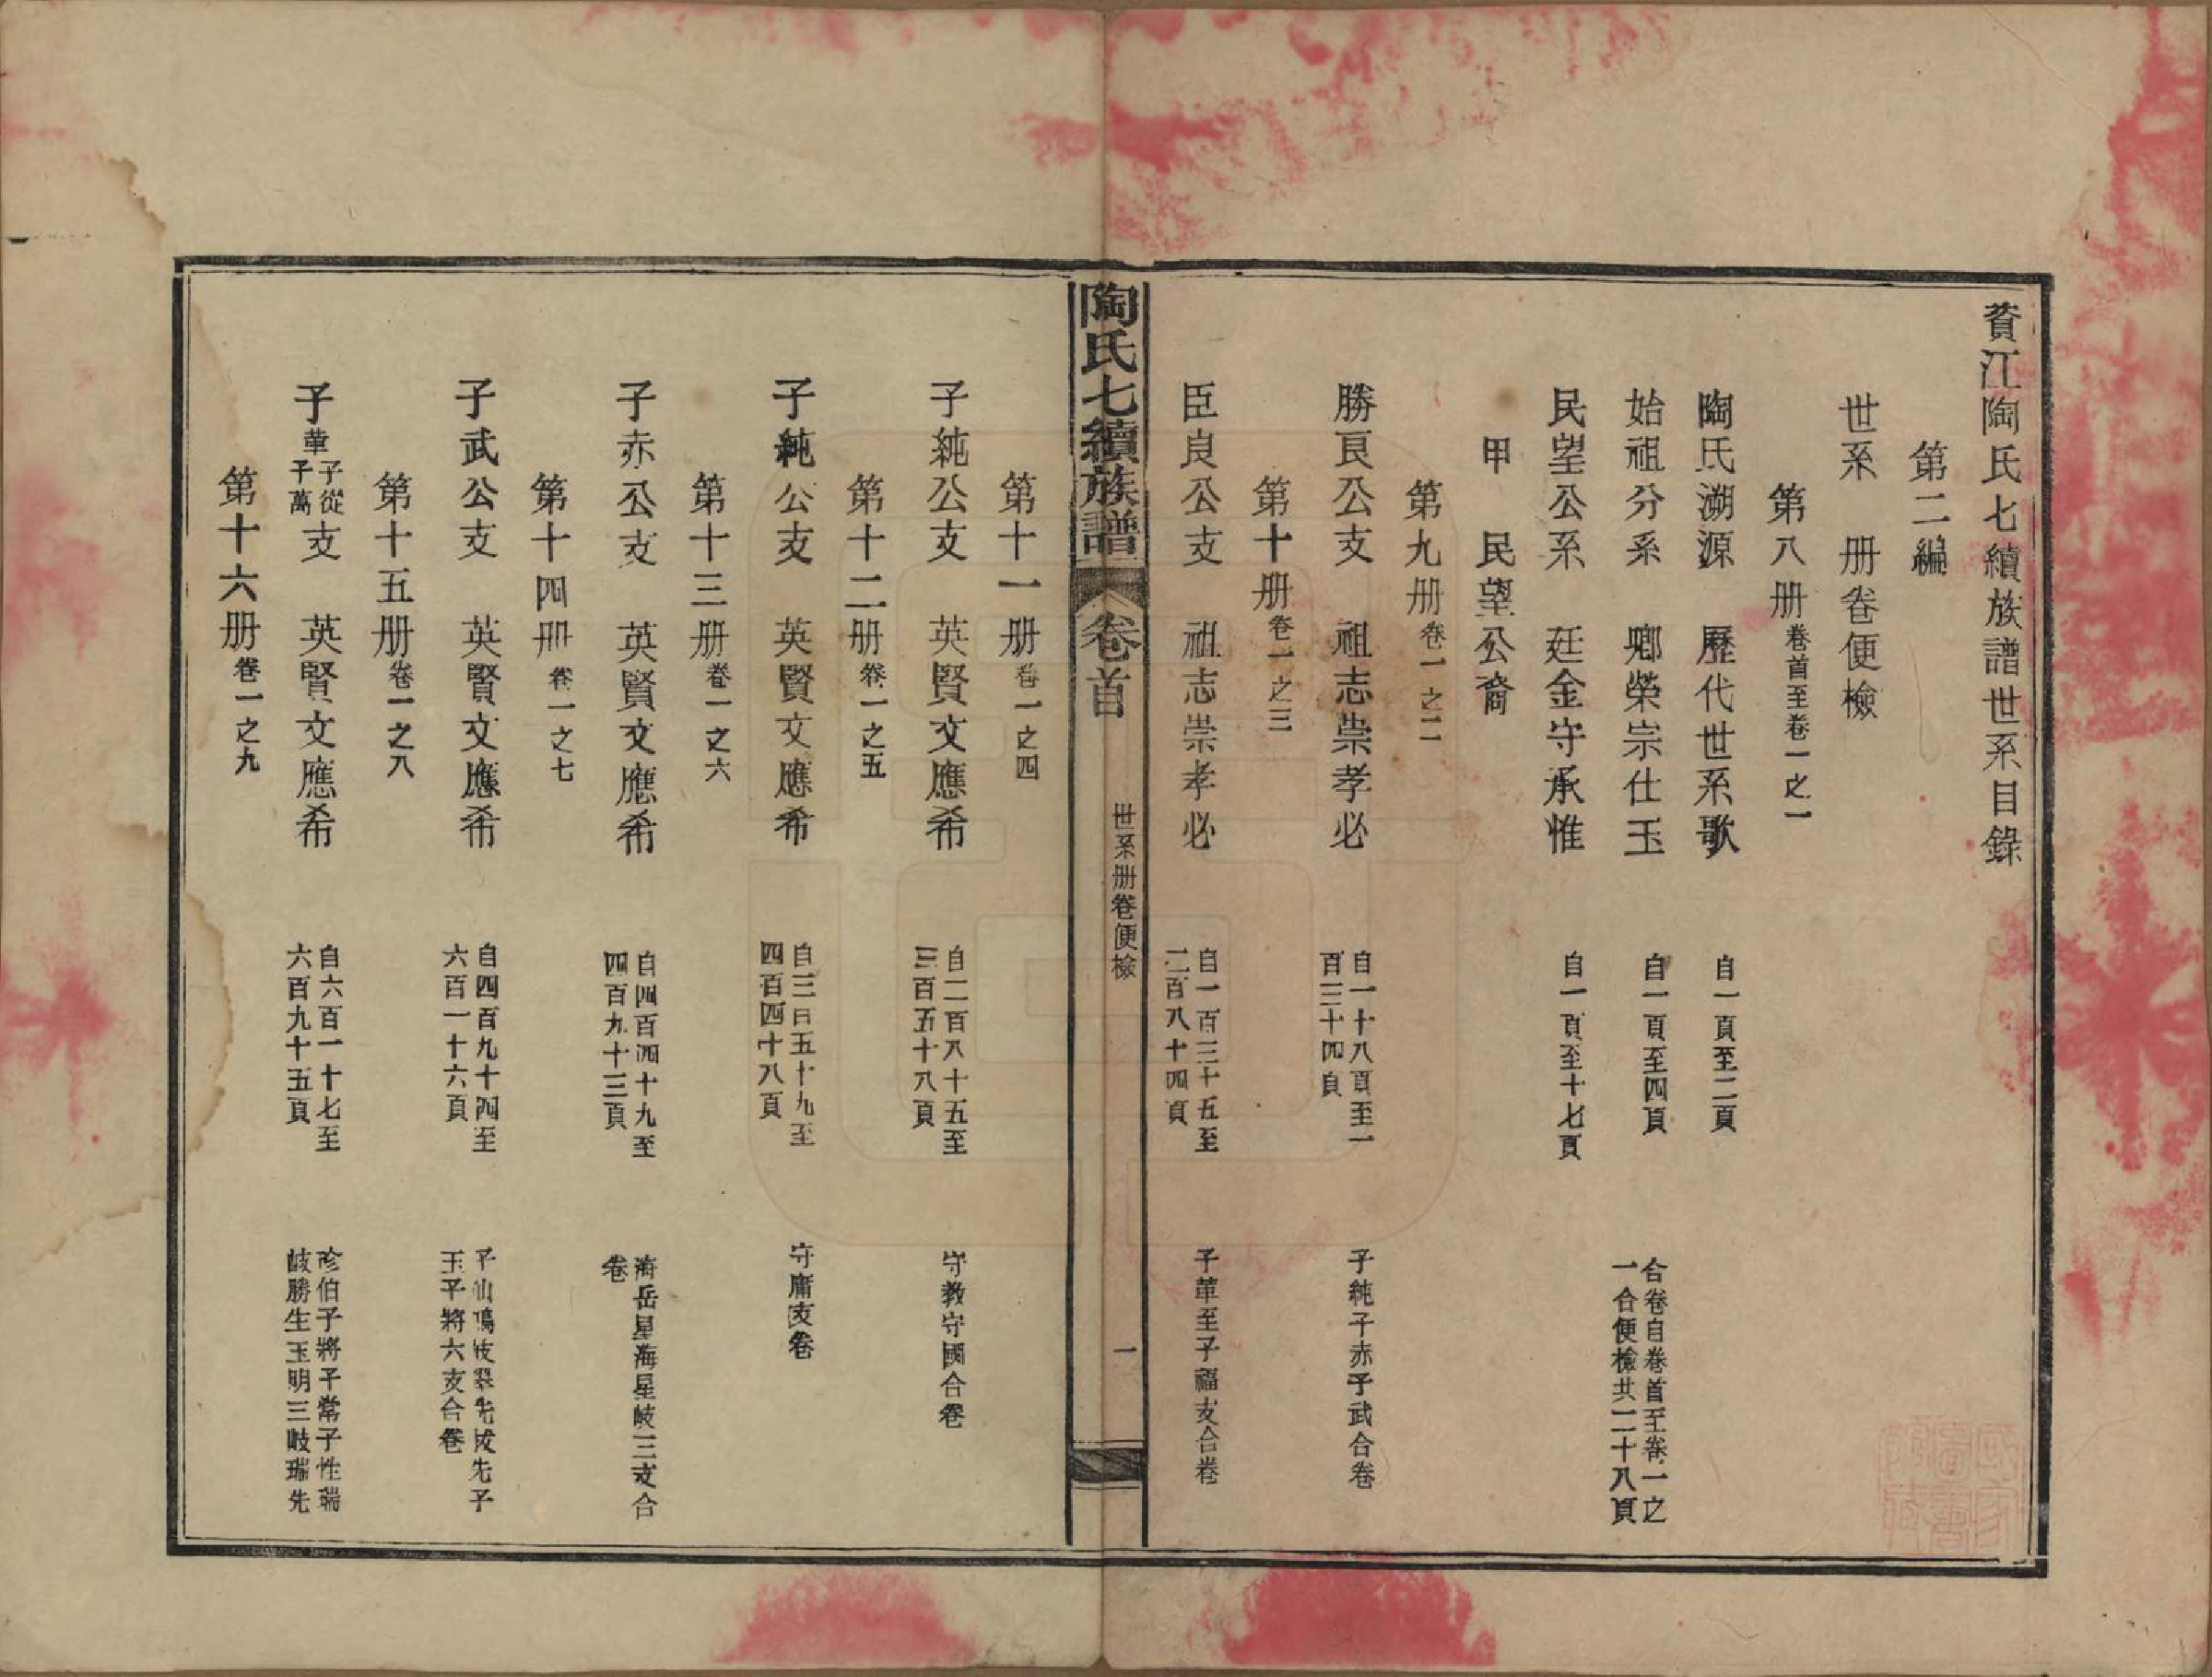 資江陶氏七續族譜世系目錄
第二編
世系 册卷便檢
第八册 卷首至卷一之一
陶氏溯源 歷代世系歌 自一頁至二頁
始祖分系 鄉榮宗仕玉 自一頁至四頁 合卷自卷首至卷一之一合便檢共二十八頁
民望公系 廷金守承惟 自一頁至十七頁
甲 民望公裔
第九册 卷一之二
勝良公支 祖志崇孝必 自一十八頁至一百三十四頁 子純子赤子武合卷
第十册 卷一之三
臣良公支 祖志崇孝必 自一百三十五至二百八十四頁 子華至子福支合卷
陶氏七續族譜 卷首 世系册卷便檢 一
第十一册 卷一之四
子純公支 英賢文應希 自二百八十五至三百五十八頁 守教守國合卷
第十二册 卷一之五
子純公支 英賢文應希 自三百五十九至四百四十八頁 守庸支卷
第十三册 卷一之六
子赤公支 英賢文應希 自四百四十九至四百九十三頁 海岳星海星岐三支合卷
第十四册 卷一之七
子武公支 英賢文應希 自四百九十四至六百一十六頁 子仙鳴岐翠先拔先子玉平將六支合卷
第十五册 卷一之八
子華子從子萬支 英賢文應希 自六百一十七至六百九十五頁 珍伯子將平常子性瑞岐勝生玉明三岐瑞先
第十六册 卷一之九